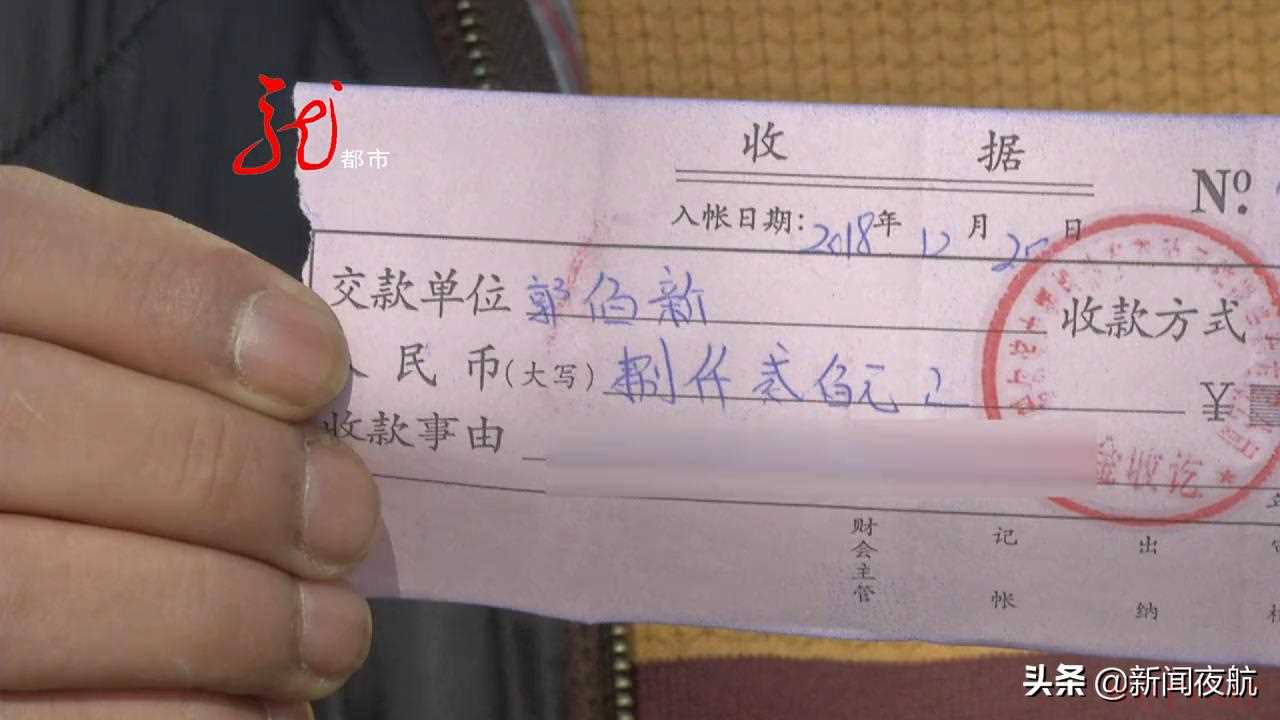 龙
都市
收 据
Nº.
入帐日期：2018年 12月 20日
交款单位 郭伯新 收款方式
人民币(大写) 捌仟贰伯元 ¥
收款事由
收讫
财会主管 记帐 出纳
头条 @新闻夜航